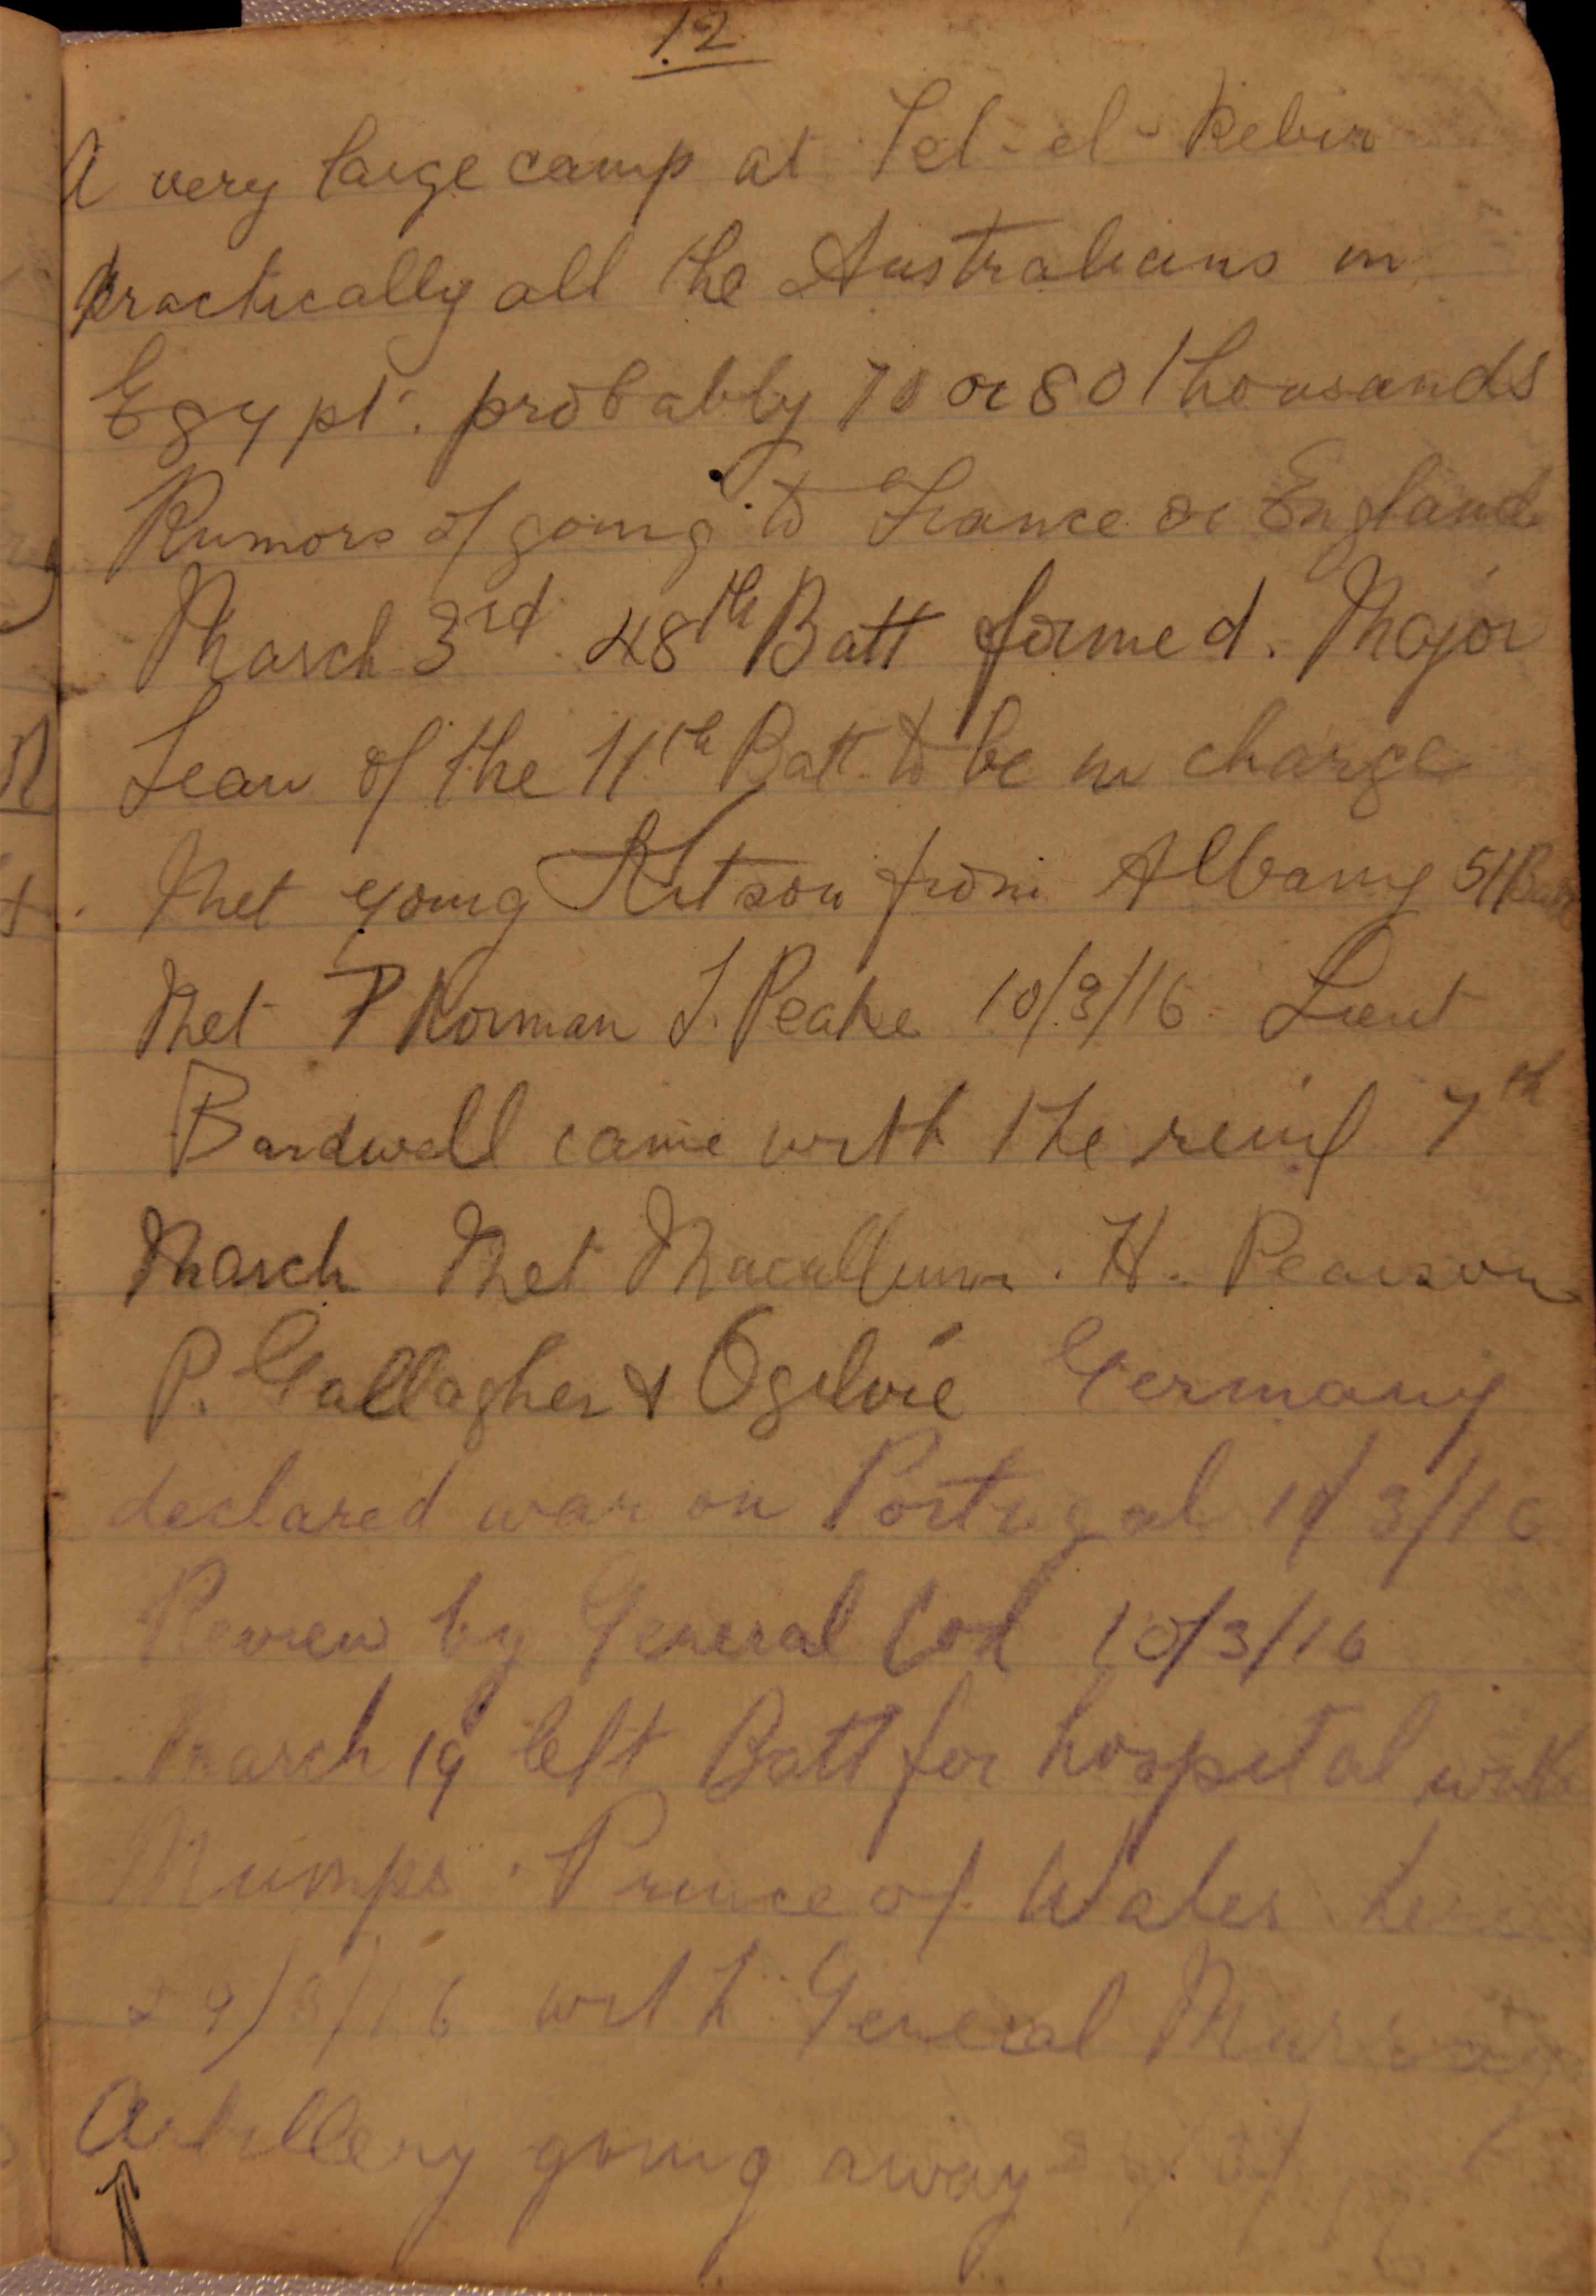 12
A very large camp at Tel-el-Kebir
practically all the Australians in
Egypt. probably 70 or 80 thousands
Rumors of going to France or England
March 3rd 48th Batt formed. Major
Lean of the 11th Batt. to be in charge
Met young Kitson from Albany 51 Batt
Met P Norman J. Peake 10/3/16 Lieut
Bardwell came with the reinf 7th
March Met Macallum. H. Pearson
P. Gallagher & Ogilvie Germany
declared war on Portugal 10/3/16
Review by General Cox 10/3/16
March 19 left Batt for hospital with
Mumps. Prince of Wales here
29/3/16 with General Murray
Artillery going away